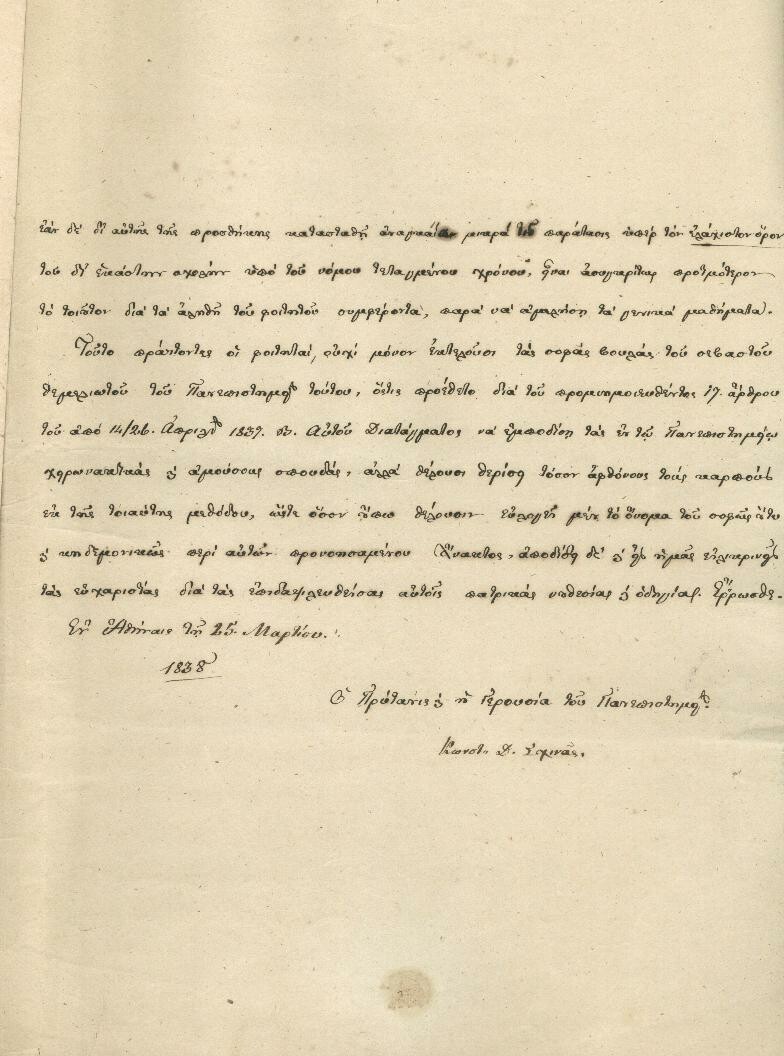 ἐὰν δὲ δι' αὐτῆς τῆς προσθήκης κατασταθῇ ἀναγκαία μικρά τις παράτασις ὑπὲρ τὸν ἐλάχιστον ὅρον
τοῦ δι' ἑκάστην σχολὴν ὑπὸ τοῦ νόμου τεταγμένου χρόνου, εἶναι ἀσυγκρίτως προτιμότερον
τὸ τοιοῦτον διὰ τὰ ἀληθῆ τοῦ φοιτητοῦ συμφέροντα, παρὰ νὰ ἀμελήσῃ τὰ γενικὰ μαθήματα.
Τοῦτο πράττοντες οἱ φοιτηταί, οὐχὶ μόνον ἐκτελοῦσι τὰς σοφὰς βουλὰς τοῦ σεβαστοῦ
θεμελιωτοῦ τοῦ Πανεπιστημίου τούτου, ὅστις προέθετο διὰ τοῦ προμνημονευθέντος 17. ἄρθρου
τοῦ ἀπὸ 14/26. Ἀπριλίου 1837. Β. Αὐτοῦ Διατάγματος νὰ ἐμποδίσῃ τὰς ἐν τῷ Πανεπιστημίῳ
χειρωνακτικὰς καὶ ἀμούσους σπουδάς, ἀλλὰ θέλουσι θερίσει τόσον ἀφθόνους τοὺς καρποὺς
ἐκ τῆς τοιαύτης μεθόδου, ὥστε ὅσον οὔπω θέλουσιν εὐλογεῖ μὲν τὸ ὄνομα τοῦ σοφῶς οὕτω
καὶ κηδεμονικῶς περὶ αὐτῶν προνοησαμένου Ἄνακτος, ἀποδίδει δὲ καὶ εἰς ἡμᾶς εἰλικρινεῖς
τὰς εὐχαριστίας διὰ τὰς ἐπιδαψιλευθείσας αὐτοῖς πατρικὰς νουθεσίας καὶ ὁδηγίας. Ἔῤῥωσθε.
Ἐν Ἀθήναις τῇ 25. Μαρτίου.
1838
Ὁ Πρύτανις καὶ ἡ Γερουσία τοῦ Πανεπιστημίου.
Κωνστ. Δ. Σχινᾶς.